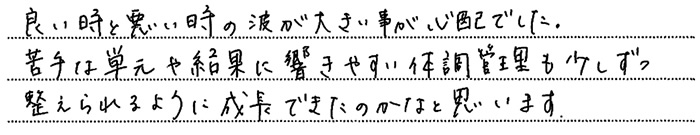 良い時と悪い時の波が大きい事が心配でした。
苦手な単元や結果に響きやすい体調管理も少しずつ
整えられるように成長できたのかなと思います。